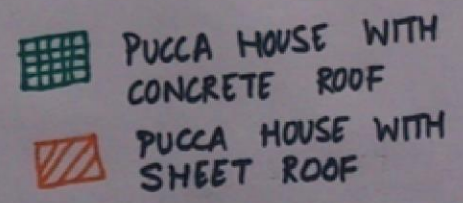 PUCCA HOUSE WITH
CONCRETE ROOF
PUCCA HOUSE WITH
SHEET ROOF